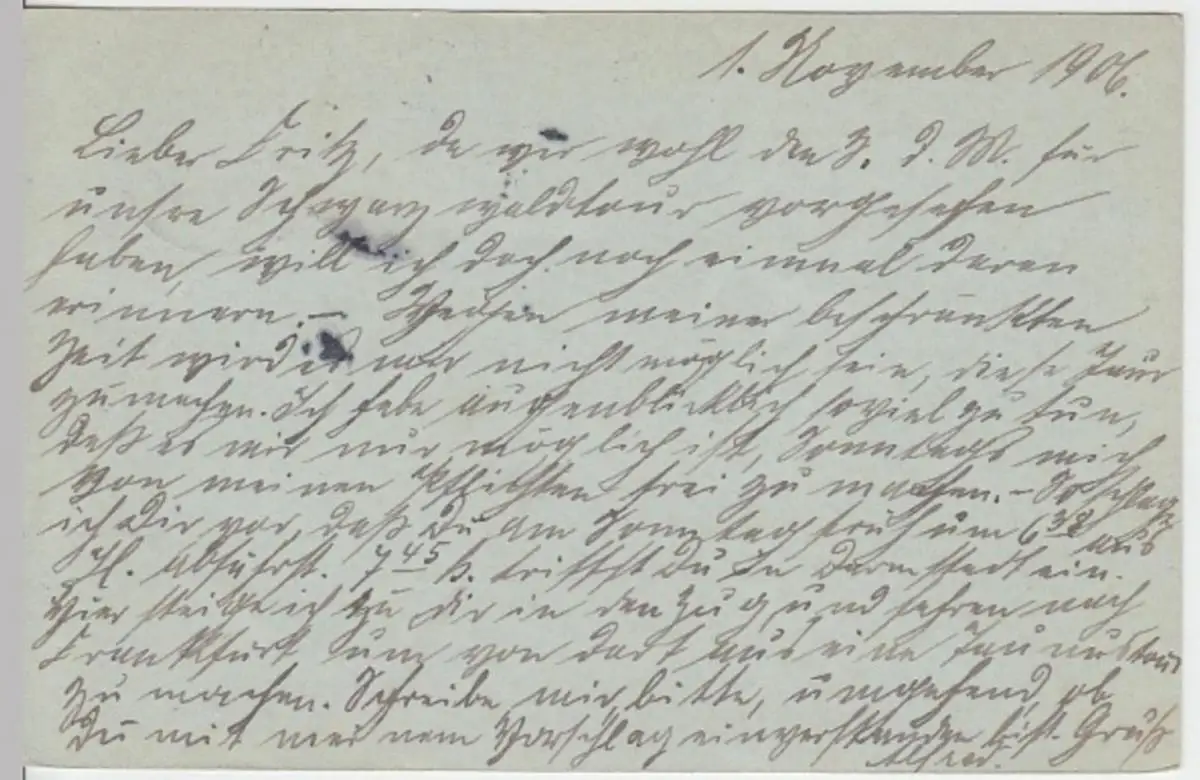 1. November 1906.
Lieber Fritz, da wir wohl den 3. d. M. für
unsre Schwarzwaldtour vorgesehen
haben, will ich doch noch einmal daran
erinnern. – Wegen meiner beschränkten
Zeit wird es mir nicht möglich sein, diese Tour
zu machen. Ich habe augenblicklich soviel zu tun,
daß es mir nur möglich ist, Sonntags mich
von meinen Pflichten frei zu machen. – So schlage
ich Dir vor, daß Du am Sonntag früh um 6 38 aus
H. abfährst. 7 45 h. triffst Du in Darmstadt ein.
Hier steige ich zu dir in den Zug und fahren nach
Frankfurt um von dort aus eine Taunustour
zu machen. Schreibe mir, bitte, umgehend, ob
Du mit meinem Vorschlag einverstanden bist. Gruß
Alfred.